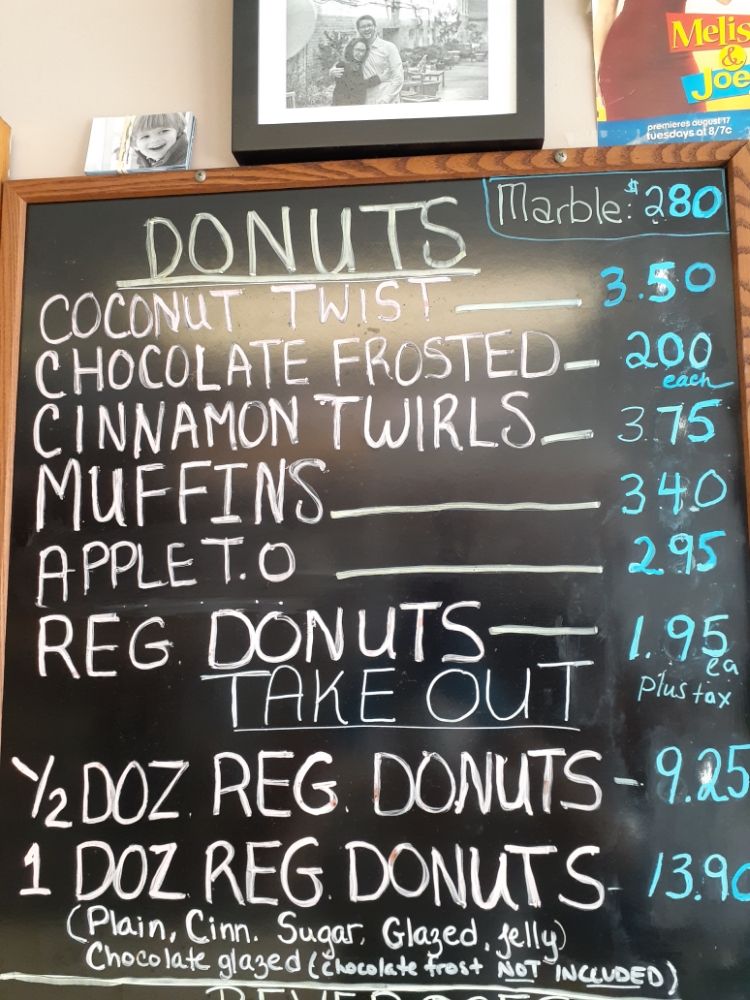 Melis
&
Joe
premieres august 17
tuesdays at 8/7c
Marble: $280
DONUTS
COCONUT TWIST 3.50
CHOCOLATE FROSTED 200
each
CINNAMON TWIRLS 3.75
MUFFINS 3.40
APPLE T.O 2.95
REG. DONUTS 1.95
ea
plus tax
TAKE OUT
1/2 DOZ. REG. DONUTS - 9.25
1 DOZ. REG. DONUTS - 13.90
(Plain, Cinn. Sugar, Glazed, jelly)
Chocolate glazed (chocolate frost NOT INCLUDED)